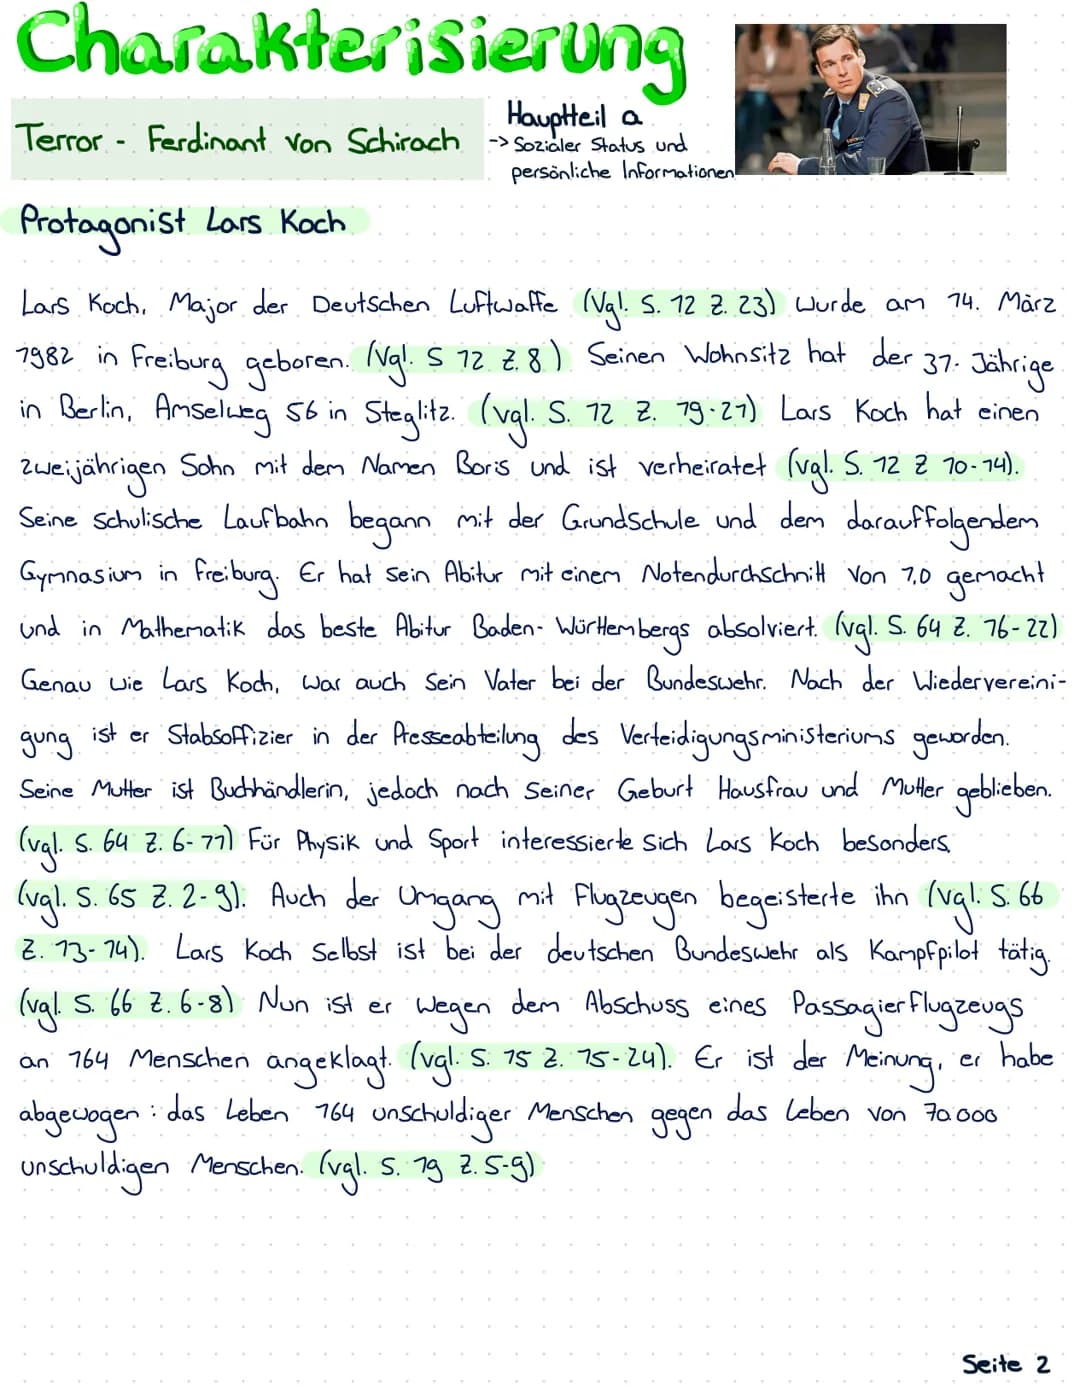 Charakterisierung
Terror - Ferdinant von Schirach
Hauptteil a
-> Sozialer Status und
persönliche Informationen
Protagonist Lars Koch
Lars Koch, Major der Deutschen Luftwaffe (Vgl. S. 12 Z. 23) wurde am 14. März
1982 in Freiburg geboren. (Vgl. S 12 Z. 8) Seinen Wohnsitz hat der 37. Jährige
in Berlin, Amselweg 56 in Steglitz. (vgl. S. 12 Z. 19-21) Lars Koch hat einen
zweijährigen Sohn mit dem Namen Boris und ist verheiratet (vgl. S. 12 Z 10-14).
Seine schulische Laufbahn begann mit der Grundschule und dem darauffolgendem
Gymnasium in Freiburg. Er hat sein Abitur mit einem Notendurchschnitt von 1,0 gemacht
und in Mathematik das beste Abitur Baden-Württembergs absolviert. (vgl. S. 64 Z. 16-22)
Genau wie Lars Koch, war auch sein Vater bei der Bundeswehr. Nach der Wiedervereini-
gung ist er Stabsoffizier in der Presseabteilung des Verteidigungsministeriums geworden.
Seine Mutter ist Buchhändlerin, jedoch nach seiner Geburt Hausfrau und Mutter geblieben.
(vgl. S. 64 Z. 6-11) Für Physik und Sport interessierte sich Lars Koch besonders.
(vgl. S. 65 Z. 2-9). Auch der Umgang mit Flugzeugen begeisterte ihn (vgl. S. 66
Z. 13-14). Lars Koch selbst ist bei der deutschen Bundeswehr als Kampfpilot tätig.
(vgl. S. 66 Z. 6-8) Nun ist er wegen dem Abschuss eines Passagierflugzeugs
an 164 Menschen angeklagt. (vgl. S. 15 Z. 15-24). Er ist der Meinung, er habe
abgewogen: das Leben 164 unschuldiger Menschen gegen das Leben von 70.000
unschuldigen Menschen. (vgl. S. 19 Z. 5-9)
Seite 2